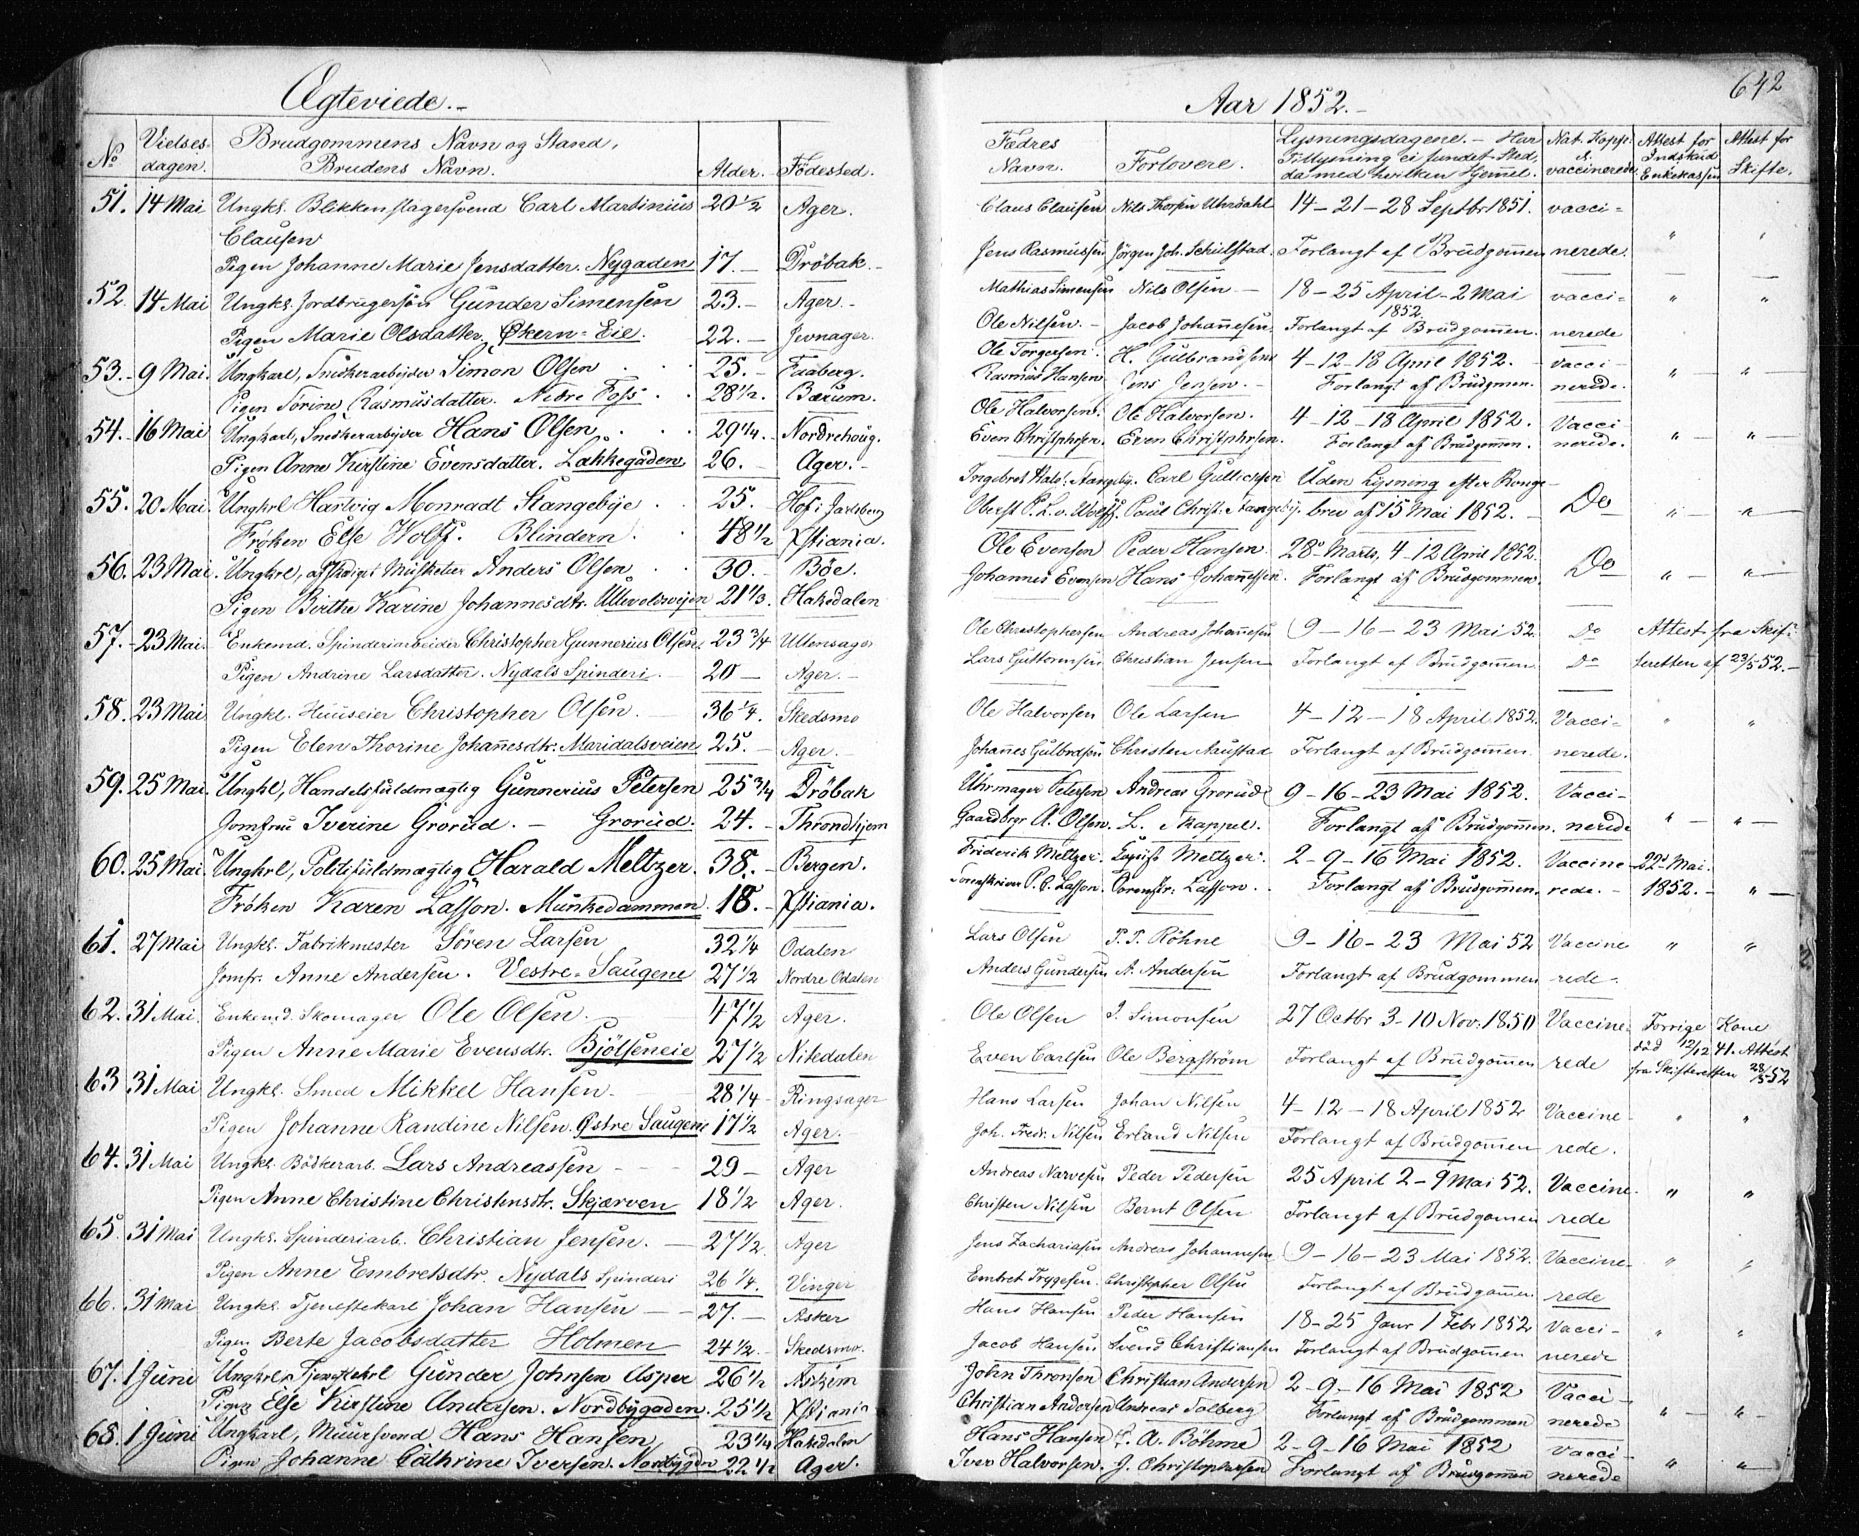 Ægteviede.-
No Vielses-dagen. Brudgommens Navn og Stand, Brudens Navn. Alder. Födested.
51. 14 Mai Ungkl. Blikkenslagersvend Carl Martinius 20 1/2 Ager.
Clausen
Pigen Johanne Marie Jensdatter. Nygaden 17.- Dröbak.-
52. 14 Mai Ungkl. Jordbrugersön Gunder Simensen 23.- Ager.-
Pigen Marie Olsdatter. Økern=Eie. 22.- Jevnager.
53.- 9 Mai. Ungkarl, Snedkerarbeider Simon Olsen 25.- Faaberg.
Pigen Torine Rasmusdatter. Nedre Foss 28 1/2. Bærum.
54.- 16 Mai Ungkarl, Snedkerarbeider Hans Olsen 29 1/4.- Nordrehoug.
Pigen Anne Kirstine Evensdatter. Lakkegaden 26.- Ager.-
55. 20 Mai. Ungkrl Hartvig Monradt Stangebÿe 25.- Hof i Jarlsberg
Fröken Else Wolff. Blindern. 48 1/2 Xstiania.
56. 23 Mai. Ungkrl, afskediget Musketier Anders Olsen 30.- Böe.
Pigen Birthe Karine Johannesdtr. Ullevoldsveien 21 1/3. Hakedalen
57.- 23 Mai. Enkemd. Spinderiarbeider Christopher Gunnerius Olsen 23 3/4 Ullensager
Pigen Andrine Larsdatter. Nydals Spinderi.- 20- Ager.-
58. 23 Mai Ungkl. Huuseier Christopher Olsen. 36 1/4. Skedsmo
Pigen Elen Thorine Johannesdtr. Maridalsveien 25.- Ager.-
59. 25 Mai. Ungkl, Handelsfuldmægtig Gunnerius Petersen 25 3/4 Dröbak
Jomfrue Iverine Grorud.- Grorud. 24.- Throndhjem
60. 25 Mai. Ungkrl, Politifuldmægtig Harald Meltzer. 38.- Bergen.
Fröken Karen Lasson. Munkedammen. 18.- Xstiania.
61. 27 Mai Ungkl. Fabrikmester Sören Larsen 32 1/4 Odalen
Jomfr. Anne Andersen. Vestre=Saugene 27 1/2 Nordre Odalen
62. 31 Mai. Enkemd. Skomager Ole Olsen. 47 1/2 Ager.
Pigen Anne Marie Evensdtr. Bjölseneie 27 1/2 Nitedalen
63 31 Mai Ungkl. Smed Mikkel Hansen. 28 1/4- Ringsager
Pigen Johanne Randine Nilsen. Østre Saugene 17 1/2 Ager.
64. 31 Mai Ungkl. Bödkerarb. Lars Andreassen 29- Ager
Pigen Anne Christine Christensdtr. Skjærven 18 1/2 Ager.
65. 31 Mai Ungkl. Spinderiarb. Christian Jensen.- 27 1/2. Ager
Pigen Anne Embretsdtr. Nydals Spinderi 26 1/4. Vinger
66. 31 Mai Ungkl. Tjenestekarl Johan Hansen 27.- Asker
Pigen Berte Jacobsdatter Holmen 24 1/2.- Skedsmo.
67. 1 Juni Ungkrl. Tjenestekrl Gunder Johnsen Asper 26 1/2
Pigen Else Kirstine Andersen. Nordbygaden. 25 1/2 Xstiania
68. 1 Juni Ungkarl, Muursvend Hans Hansen 23 1/4 Hakedalen
Johanne Cathrine Iversen. Nordbygden 22 1/2 Ager.
642
Aar 1852.-
Fædres Navn. Forlovere. Lysningsdagene.- Har Tillysning ei fundet Sted, da med hvilken Hjemel. Nat. Kopp. el. vaccinerede Attest for Indskud Enkekassen Attest for Skifte.
Claus Clausen Nils Thorsen Uhrdahl 14-21-28 Septbr 1851. vacci=
Jens Rasmussen Jörgen Joh. Schulstad. Forlangt af Brudgommen nerede. " "
Mathias Simensen Nils Olsen- 18-25 April-2 Mai 1852. vacci= " "
Ole Nilsen.- Jacob Johannesen. Forlangt af Brudgommen. nerede
Ole Torgersen. H. Gulbrandsen 4-12-18 April 1852.- vacci-
Rasmus Hansen Jens Jensen.- Forlangt af Brudgmen. nerede. " "
Ole Halvorsen. Ole Halvorsen. 4-12-18 April 1852. Vacci
Even Christphrsen. Even Christphrsen. Forlangt af Brudgomen. nerede. " "
Ingebret Halv: Stangeby. Carl Gulliksen Uden Lysning efter Konge-
Oberst P. L. v. Wolff. Paul Christ. Stangeby. brev af 15 Mai 1852.- Do " "
Ole Evensen Peder Hansen. 28 Marts, 4-12 April 1852.
Johannes Evensen Hans Johannessen. Forlangt af Brudgommen. Do " "
Ole Christophersen Andreas Johannesen 9-16-23 Mai 52. Do Attest fra Skif-
Lars Guttormsen Christian Jensen Forlangt af Brudgommen Do teretten af 23/5 52.-
Ole Halvorsen Ole Larsen 4-12-18 April 1852. Vacci= " "
Johannes Gulbrdsen Christen Naustad Forlangt af Brudgommen. nerede.
Uhrmager Petersen Andreas Grorud 9-16-23 Mai 1852. Vacci-
Gaardbrgr A. Olsen. L. Skappel. Forlangt af Brudgommen. nerede " "
Friderik Meltzer. August Meltzer. 2-9-16 Mai 1852. Vaccine- 22d Mai.
Sorenskriver P. C. Lasson. Lasson. Forlangt af Brudgommen. rede.- 1852.- "
Lars Olsen P. P. Röhne 9-16-23 Mai 52 Vaccine " "
Anders Gundersen A. Andersen Forlangt af Brudgommen rede.
Ole Olsen I. Simonsen 27 Octbr 3-10 Nov: 1850 Vaccine- Forrige Kone
Even Carlsen Ole Bergström Forlangt af Brudgommen rede död 12/12 41. Attest
fra Skifteretten 28/5 52
Hans Larsen Johan Nilsen 4-12-18 April 1852 Vaccine- " "
Joh. Fredr. Nilsen Erland Nilsen Forlangt af Brudgommen rede.
Andreas Narvesen Peder Pedersen 25 April 2-9 Mai 52. Vaccine- " "
Christen Nilsen Bernt Olsen Forlangt af Brudgomen rede
Jens Zachariasen Andreas Johannesen 9-16-23 Mai 1852. Vaccine- " "
Embret Tryggesen. Christopher Olsen Forlangt af Brudgommen. rede
Hans Hansen Peder Hansen 18-25 Janr 1 Febr 1852 Vacci- " "
Jacob Hansen Svend Christiansen Forlangt af Brudgommen nerede
John Thronsen Christian Andersen 2-9-16 Mai 1852 Vacci-
Christian Andersen Andreas Solberg Forlangt af Brudgommen nerede " "
Hans Hansen A. Böhme 2-9-16 Mai 1852 Vacci-
Iver Halvorsen. J. Christophersen Forlangt af Brudgommen nerede " "